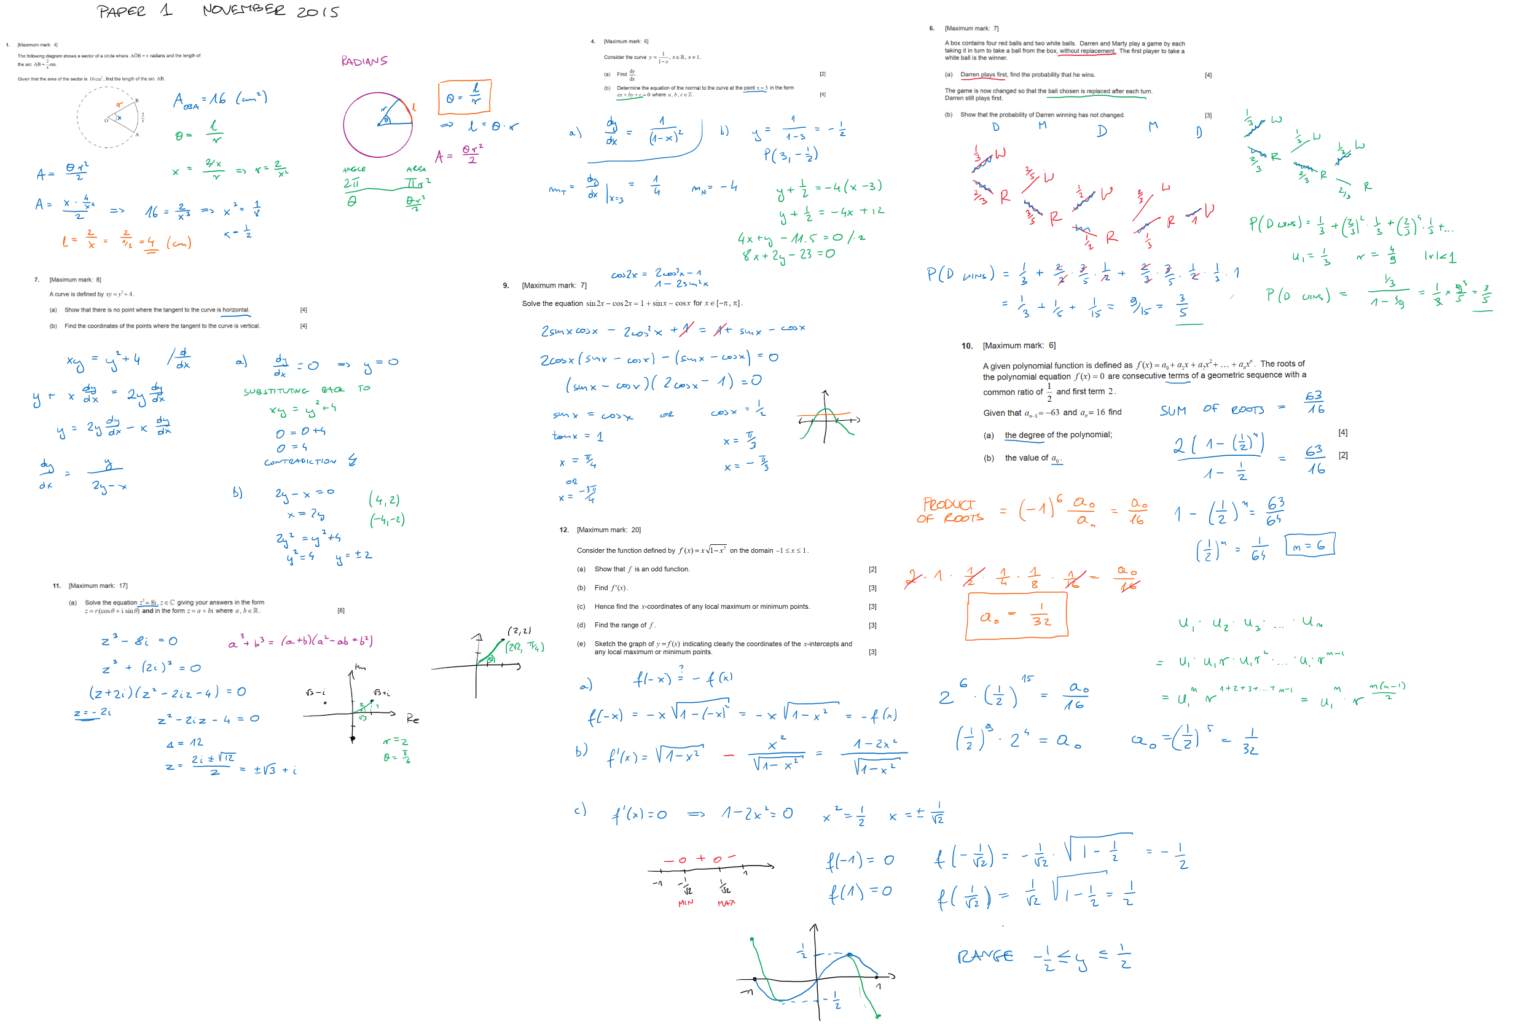 PAPER 1 NOVEMBER 2015
1. [Maximum mark: 4]
The following diagram shows a sector of a circle where AÔB = x radians and the length of
the arc AB = 2/x cm.
Given that the area of the sector is 16 cm², find the length of the arc AB.
A_OBA = 16 (cm²)
θ = l/r
x = (2/x)/r ⇒ r = 2/x²
A = θr²/2
A = (x · 4/x⁴)/2 ⇒ 16 = 2/x³ ⇒ x³ = 1/8
x = 1/2
l = 2/x = 2/(1/2) = 4 (cm)
RADIANS
θ = l/r
⇒ l = θ · r
A = θr²/2
ANGLE AREA
2π πr²
θ θr²/2
4. [Maximum mark: 6]
Consider the curve y = 1/(1−x), x ∈ ℝ, x ≠ 1.
(a) Find dy/dx. [2]
(b) Determine the equation of the normal to the curve at the point x = 3 in the form
ax + by + c = 0 where a, b, c ∈ ℤ. [4]
a) dy/dx = 1/(1−x)²
b) y = 1/(1−3) = −1/2
P(3, −1/2)
m_T = dy/dx |x=3 = 1/4 m_N = −4
y + 1/2 = −4(x − 3)
y + 1/2 = −4x + 12
4x + y − 11.5 = 0 /·2
8x + 2y − 23 = 0
6. [Maximum mark: 7]
A box contains four red balls and two white balls. Darren and Marty play a game by each
taking it in turn to take a ball from the box, without replacement. The first player to take a
white ball is the winner.
(a) Darren plays first, find the probability that he wins. [4]
The game is now changed so that the ball chosen is replaced after each turn.
Darren still plays first.
(b) Show that the probability of Darren winning has not changed. [3]
D M D M D
1/3 W
2/3 R
2/5 W
3/5 R
1/2 W
1/2 R
2/3 W
1/3 R
1 W
P(D WINS) = 1/3 + 2/3 · 3/5 · 1/2 + 2/3 · 3/5 · 1/2 · 1/3 · 1
= 1/3 + 1/5 + 1/15 = 9/15 = 3/5
1/3 W
2/3 R
1/3 W
2/3 R
1/3 W
2/3 R
P(D WINS) = 1/3 + (2/3)² · 1/3 + (2/3)⁴ · 1/3 + ...
u₁ = 1/3 r = 4/9 |r| < 1
P(D WINS) = (1/3)/(1 − 4/9) = 1/3 × 9/5 = 3/5
7. [Maximum mark: 8]
A curve is defined by xy = y² + 4.
(a) Show that there is no point where the tangent to the curve is horizontal. [4]
(b) Find the coordinates of the points where the tangent to the curve is vertical. [4]
xy = y² + 4 / d/dx
y + x dy/dx = 2y dy/dx
y = 2y dy/dx − x dy/dx
dy/dx = y/(2y − x)
a) dy/dx = 0 ⇒ y = 0
SUBSTITUTING BACK TO
xy = y² + 4
0 = 0 + 4
0 = 4
CONTRADICTION
b) 2y − x = 0
x = 2y
2y² = y² + 4
y² = 4 y = ±2
(4, 2)
(−4, −2)
cos2x = 2cos²x − 1
1 − 2sin²x
9. [Maximum mark: 7]
Solve the equation sin 2x − cos 2x = 1 + sin x − cos x for x ∈ [−π, π].
2sinx cosx − 2cos²x + 1 = 1 + sinx − cosx
2cosx(sinx − cosx) − (sinx − cosx) = 0
(sinx − cosx)(2cosx − 1) = 0
sinx = cosx or cosx = 1/2
tanx = 1 x = π/3
x = π/4 x = −π/3
or
x = −3π/4
10. [Maximum mark: 6]
A given polynomial function is defined as f(x) = a₀ + a₁x + a₂x² + ... + aₙxⁿ. The roots of
the polynomial equation f(x) = 0 are consecutive terms of a geometric sequence with a
common ratio of 1/2 and first term 2.
Given that aₙ₋₁ = −63 and aₙ = 16 find
(a) the degree of the polynomial; [4]
(b) the value of a₀. [2]
SUM OF ROOTS = 63/16
2(1 − (1/2)ⁿ)/(1 − 1/2) = 63/16
1 − (1/2)ⁿ = 63/64
(1/2)ⁿ = 1/64 n = 6
PRODUCT OF ROOTS = (−1)⁶ a₀/aₙ = a₀/16
2 · 1 · 1/2 · 1/4 · 1/8 · 1/16 = a₀/16
a₀ = 1/32
u₁ · u₂ · u₃ · ... · uₙ
= u₁ · u₁r · u₁r² · ... · u₁ · rⁿ⁻¹
= u₁ⁿ r^(1+2+3+...+n−1) = u₁ⁿ · r^(n(n−1)/2)
2⁶ · (1/2)¹⁵ = a₀/16
(1/2)⁹ · 2⁴ = a₀ a₀ = (1/2)⁵ = 1/32
11. [Maximum mark: 17]
(a) Solve the equation z³ = 8i, z ∈ ℂ giving your answers in the form
z = r(cos θ + i sin θ) and in the form z = a + bi where a, b ∈ ℝ. [6]
z³ − 8i = 0
a³ + b³ = (a+b)(a² − ab + b²)
z³ + (2i)³ = 0
(z + 2i)(z² − 2iz − 4) = 0
z = −2i z² − 2iz − 4 = 0
Δ = 12
z = (2i ± √12)/2 = ±√3 + i
Im
Re
√3 − i
√3 + i
r = 2
(2, 2)
(2√2, π/4)
12. [Maximum mark: 20]
Consider the function defined by f(x) = x√(1−x²) on the domain −1 ≤ x ≤ 1.
(a) Show that f is an odd function. [2]
(b) Find f′(x). [3]
(c) Hence find the x-coordinates of any local maximum or minimum points. [3]
(d) Find the range of f. [3]
(e) Sketch the graph of y = f(x) indicating clearly the coordinates of the x-intercepts and
any local maximum or minimum points. [3]
a) f(−x) ?= −f(x)
f(−x) = −x√(1−(−x)²) = −x√(1−x²) = −f(x)
b) f′(x) = √(1−x²) − x²/√(1−x²) = (1−2x²)/√(1−x²)
c) f′(x) = 0 ⇒ 1 − 2x² = 0 x² = 1/2 x = ±1/√2
− 0 + 0 −
−1 −1/√2 1/√2 1
MIN MAX
f(−1) = 0 f(−1/√2) = −1/√2 · √(1 − 1/2) = −1/2
f(1) = 0 f(1/√2) = 1/√2 √(1 − 1/2) = 1/2
RANGE −1/2 ≤ y ≤ 1/2
1/2
−1 1
−1/2